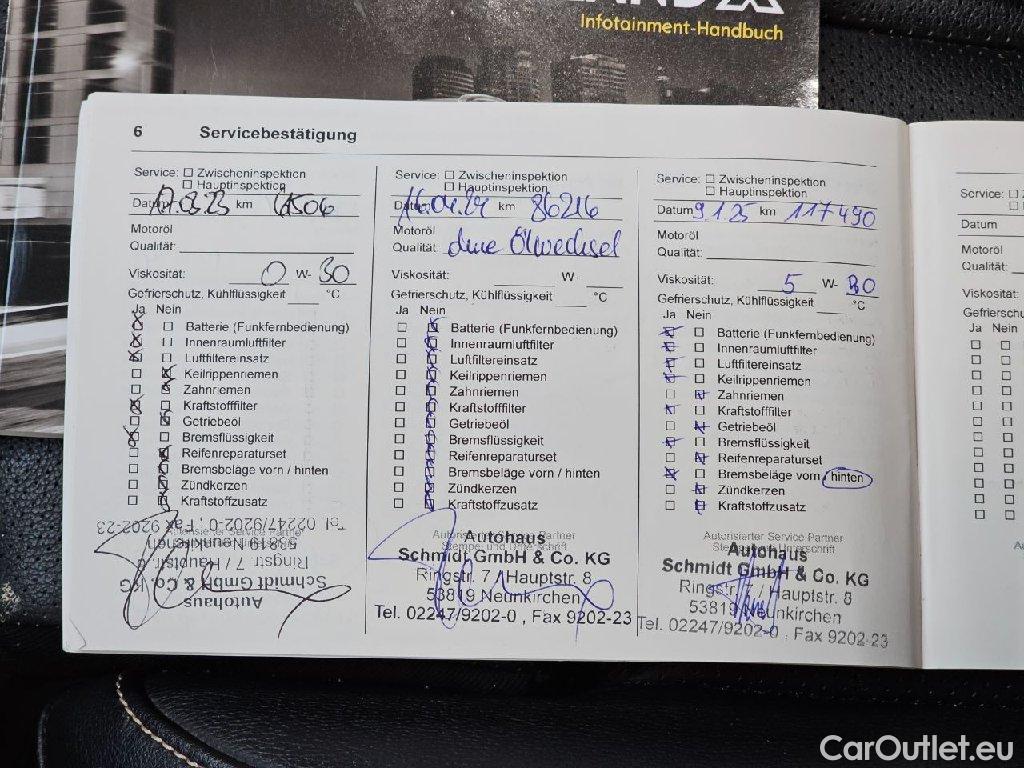 Infotainment-Handbuch
6 Servicebestätigung
Service: ☐ Zwischeninspektion
☐ Hauptinspektion
Datum 17.03.23 km
Motoröl
Qualität:
Viskosität: 0 W- 30
Gefrierschutz, Kühlflüssigkeit °C
Ja Nein
Batterie (Funkfernbedienung)
Innenraumluftfilter
Luftfiltereinsatz
Keilrippenriemen
Zahnriemen
Kraftstofffilter
Getriebeöl
Bremsflüssigkeit
Reifenreparaturset
Bremsbeläge vorn / hinten
Zündkerzen
Kraftstoffzusatz
Autorisierter Service Partner
Autohaus
Schmidt GmbH & Co. KG
Ringstr. 7 / Hauptstr. 8
53819 Neunkirchen
Tel. 02247/9202-0 , Fax 9202-23
Service: ☐ Zwischeninspektion
☐ Hauptinspektion
Datum 16.04.24 km 86216
Motoröl
Qualität: ohne Ölwechsel
Viskosität: W
Gefrierschutz, Kühlflüssigkeit °C
Ja Nein
Batterie (Funkfernbedienung)
Innenraumluftfilter
Luftfiltereinsatz
Keilrippenriemen
Zahnriemen
Kraftstofffilter
Getriebeöl
Bremsflüssigkeit
Reifenreparaturset
Bremsbeläge vorn / hinten
Zündkerzen
Kraftstoffzusatz
Autorisierter Service Partner
Stempel und Unterschrift
Autohaus
Schmidt GmbH & Co. KG
Ringstr. 7 / Hauptstr. 8
53819 Neunkirchen
Tel. 02247/9202-0 , Fax 9202-23
Service: ☐ Zwischeninspektion
☐ Hauptinspektion
Datum 9.1.25 km 117490
Motoröl
Qualität:
Viskosität: 5 W- 30
Gefrierschutz, Kühlflüssigkeit °C
Ja Nein
Batterie (Funkfernbedienung)
Innenraumluftfilter
Luftfiltereinsatz
Keilrippenriemen
Zahnriemen
Kraftstofffilter
Getriebeöl
Bremsflüssigkeit
Reifenreparaturset
Bremsbeläge vorn / hinten
Zündkerzen
Kraftstoffzusatz
Autorisierter Service Partner
Stempel und Unterschrift
Autohaus
Schmidt GmbH & Co. KG
Ringstr. 7 / Hauptstr. 8
53819 Neunkirchen
Tel. 02247/9202-0 , Fax 9202-23
Service: ☐
Datum
Motoröl
Qualität:
Viskosität:
Ja Nein
CarOutlet.eu